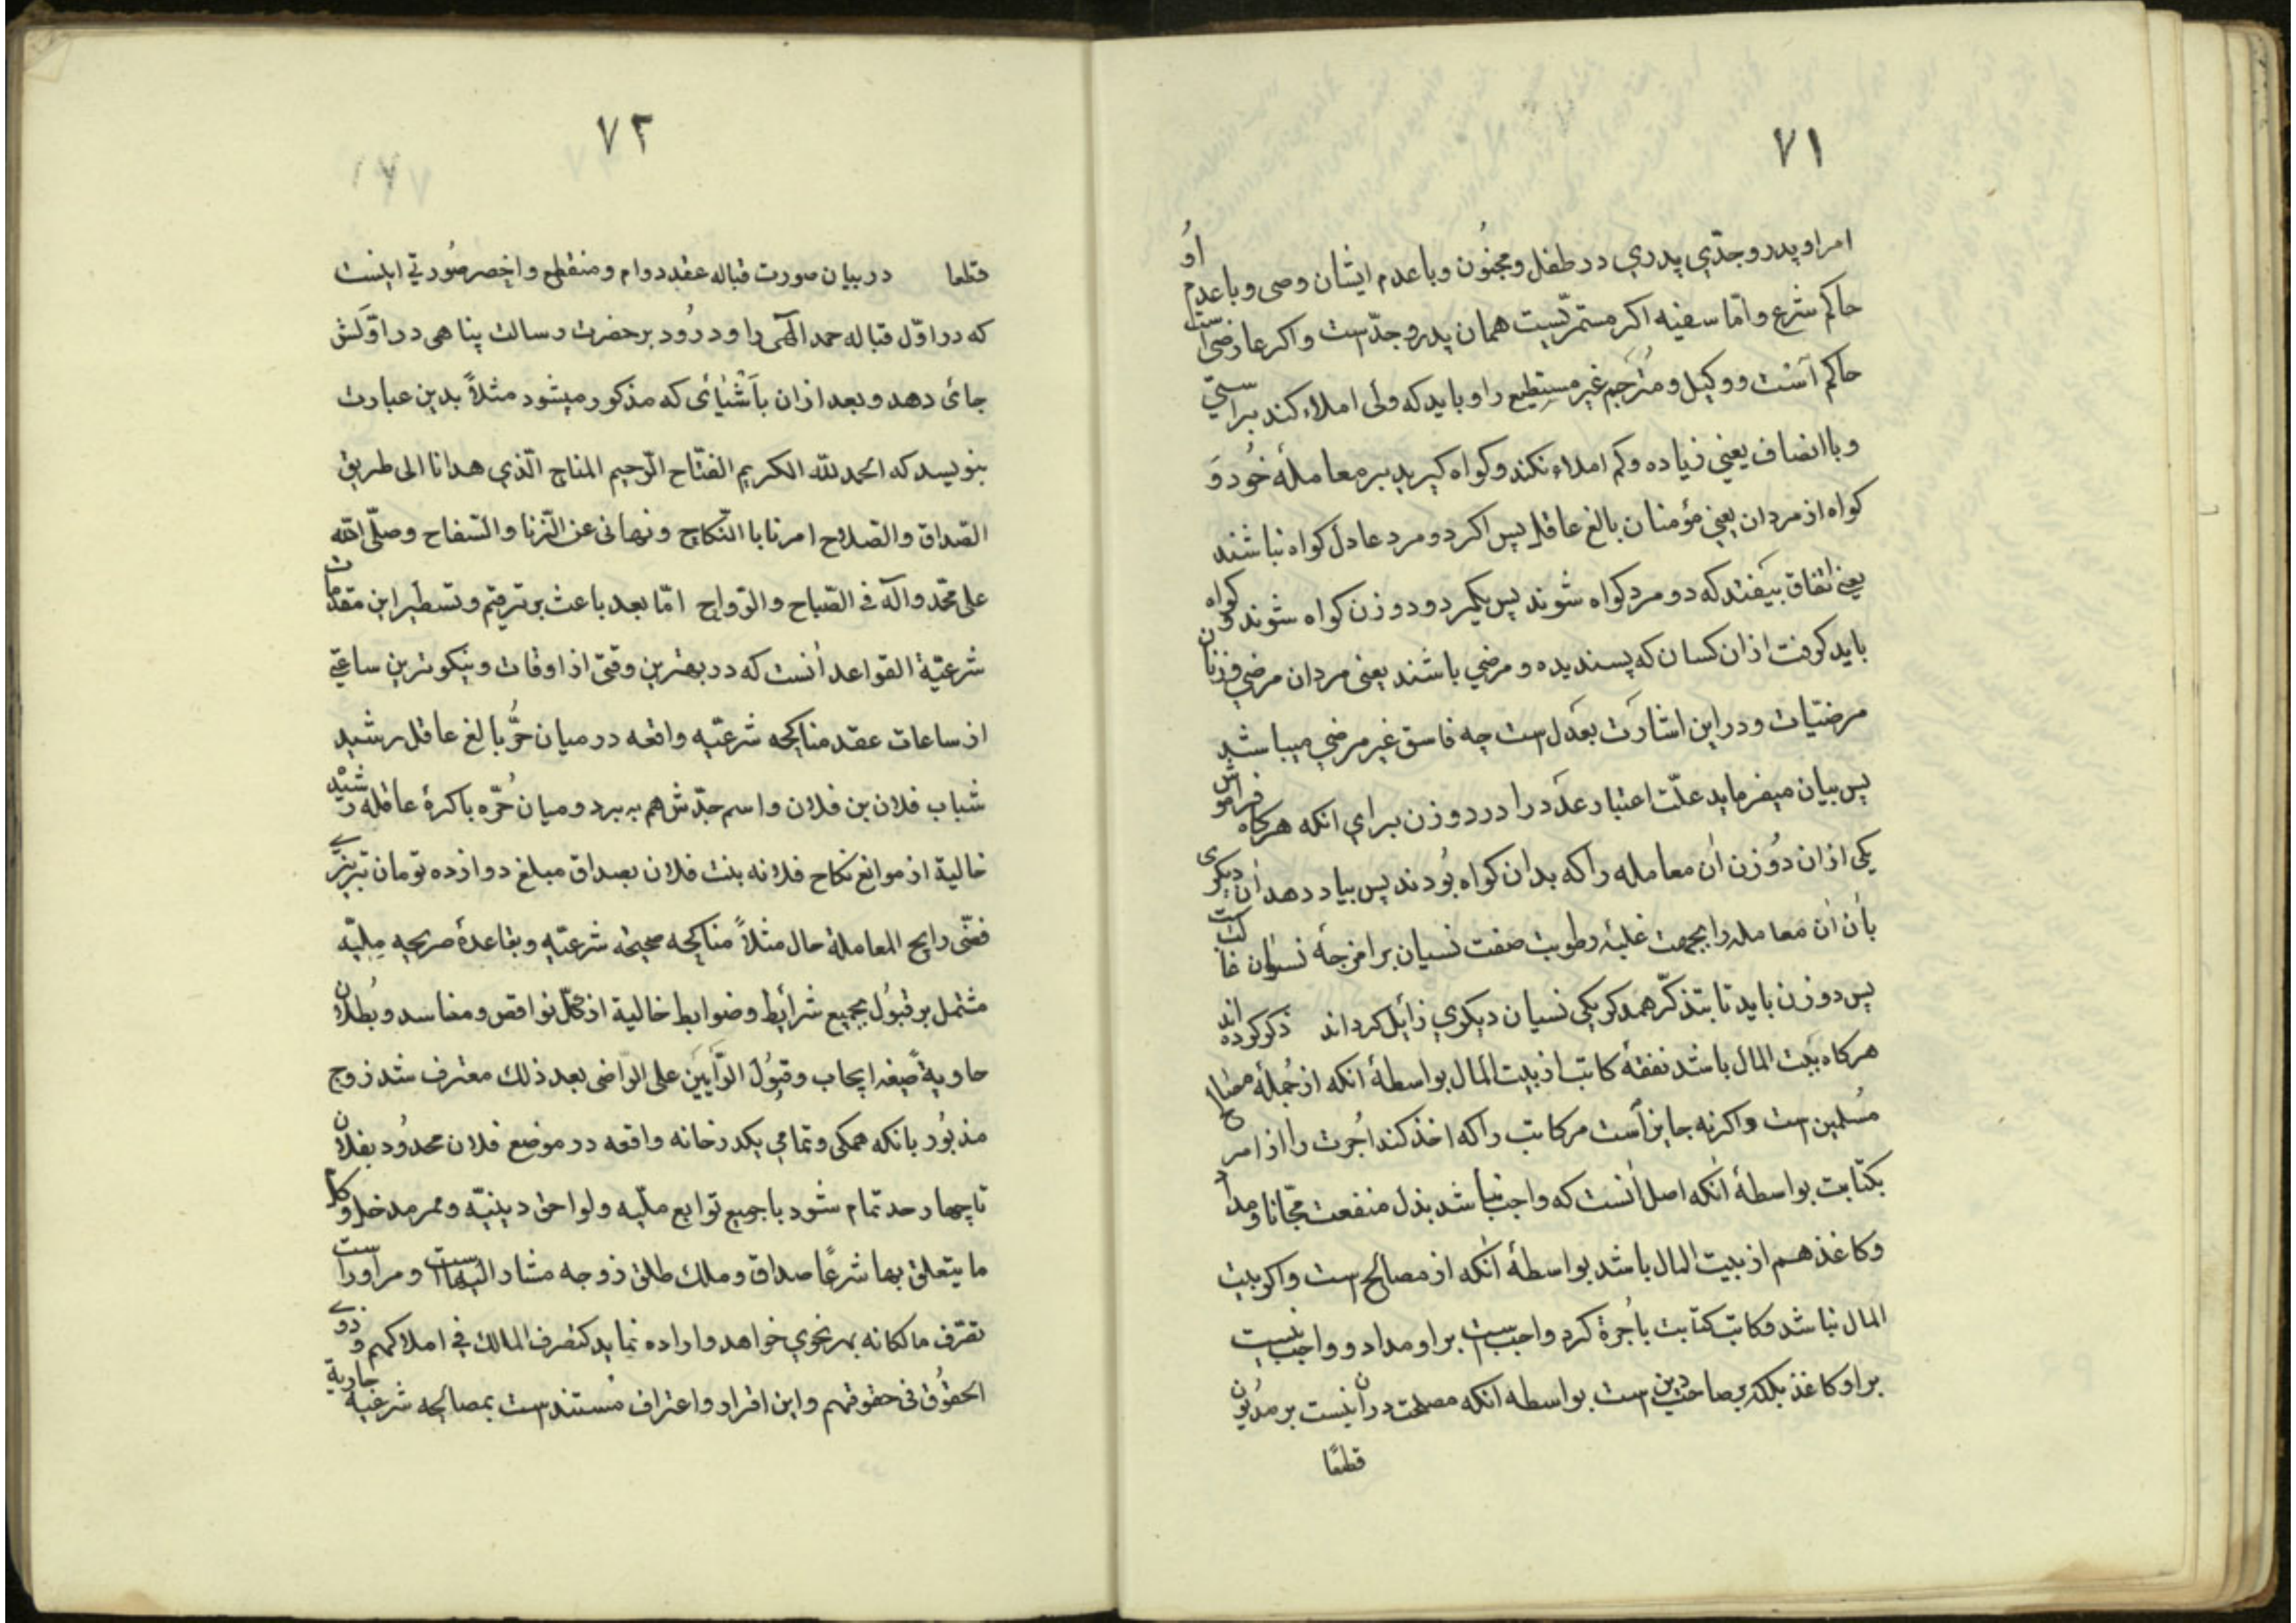 ٧١
امر او پدر و جدّي پدري در طفل و مجنُون و با عدم ایشان وصی و با عدم اوُ
حاکم شرع و امّا سفیه اکر مستمرّیست همان پدر و جدّ است و اکر عارضی است
حاکم آنست و وکیل و مُترَجِم غیر مستطیع را و باید که ولی املاء کند براستیّ
و با انصاف یعنی زیاده و کم املاء نکند و کواه کیرید بر معاملهٔ خُود وَ
کواه از مردان یعنی مؤمنان بالغ عاقل پس اکر دو مرد عادل کواه نباشند
یعنی اتفاق نیفتد که دو مرد کواه شوند پس یکمرد و دو زن کواه شوند و کواه
باید کرفت از ان کسان که پسندیده و مرضي باشند یعنی مردان مرضي و زنان
مرضیّات و در این اشارت بعدل است چه فاسق غیر مرضي میباشد
پس بیان میفرماید علّت اعتبار عدد را در دو زن برای انکه هرکاه فراموش
یکی از ان دُو زن ان معامله را که بدان کواه بُودند پس بیاد دهد ان دیکری
بان ان معامله را بجهت غلبهٔ رطوبت صفت نسیان بر امزجهٔ نسوان غالبست
پس دو زن باید تا بتذکّر همدکر یکی نسیان دیکري زایل کرداند ذکر کرده اند
هرکاه بیت المال باشد نفقهٔ کاتب از بیت المال بواسطهٔ انکه از جُملهٔ مصالح
مُسلمین است و اکر نه جایز است مر کاتب را که اخذ کند اُجرت را از امر
بکتابت بواسطهٔ انکه اصل انست که واجب نباشد بذل منفعت مجّانا و مداد
و کاغذ هم از بیت المال باشد بواسطهٔ انکه از مصالح است و اکر بیت
المال نباشد و کاتب کتابت باُجرة کرد واجب است بر او مداد و واجب نیست
بر او کاغذ بلکه بر صاحب دین است بواسطه انکه مصلحت در ان نیست بر مدُیون
قطعًا
٧٢
قطعا در بیان صورت قباله عقد دوام و منقطع و اخصر صُورتي اینست
که در اوّل قباله حمد الٓهی را و درُود بر حضرت رسالت پناهی در اوّلش
جائ دهد و بعد از ان باَشْیٰائی که مذکور میشود مثلاً بدین عبارت
بنویسد که الحمد لله الکریم الفتّاح الرّحیم المناح الّذي هدانا الی طریق
الصّداق و الصّلاح امرنا با النّکاح و نهانی عن الزّنا و السّفاح و صلّی الله
علی محمّد و آله فی الصّباح و الرّواح امّا بعد باعث بر ترقیم و تسطیر این مقدّمات
شرعیّة القواعد انست که در بهترین وقتی از اوقات و نیکوترین ساعتي
از ساعات عقد مناکحه شرعیّه واقعه در میان حُرّ بالغ عاقل رشید
شباب فلان بن فلان و اسم جدّش هم به برد و میان حُرّه باکرهٔ عاقله رشیْد
خالیة از موانع نکاح فلانه بنت فلان بصداق مبلغ دوازده تومان تبریزے
فضّی رایج المعاملهٔ حال مثلاً مناکحه صحیحه شرعیّه و بقاعدهٔ صریحه مِلیّه
مشتمل بر قبُول بجمیع شرایط و ضوابط خالیة از کلّ نواقص و مفاسد و بُطلان
حاویةً صیغه ایجاب و قبُول الرّآیَین علی الرّاضی بعد ذلك معترف شد زوج
مذبُور بانکه همکی و تمامي یکدرخانه واقعه در موضع فلان محدُود بفلان
تا چهار حد تمام شود با جمیع توابع ملّیه و لواحق دینیّه و ممر مدخل و کل
ما یتعلق بها شرعًا صداق و ملك طلق زوجه مشار الیها است و مر او راست
تصّرف مالکانه بهر نحوي خواهد و اراده نماید کتصرف المالك في املاکهم و ذوے
الحقُوق في حقوقهم و این اقرار و اعتراف مستند است بمصالحه شرعیة جاریة